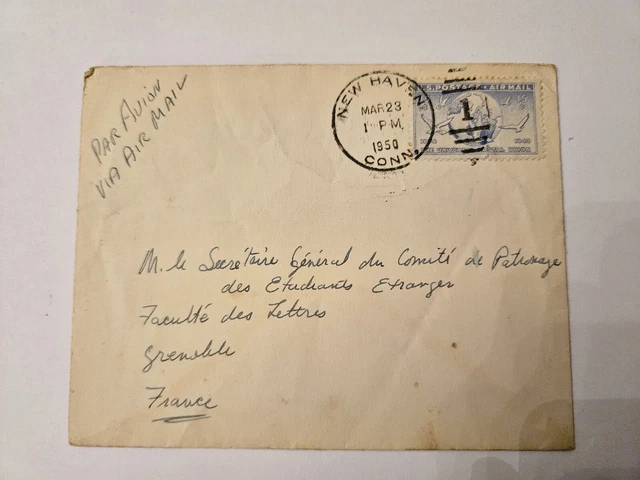 PAR AVION
VIA AIR MAIL
NEW HAVEN
MAR 23
1 PM
1950
CONN.
U.S. POSTAGE · AIR MAIL
1
M. le Secrétaire Général du Comité de Patronage
des Etudiants Etranger
Faculté des Lettres
Grenoble
France